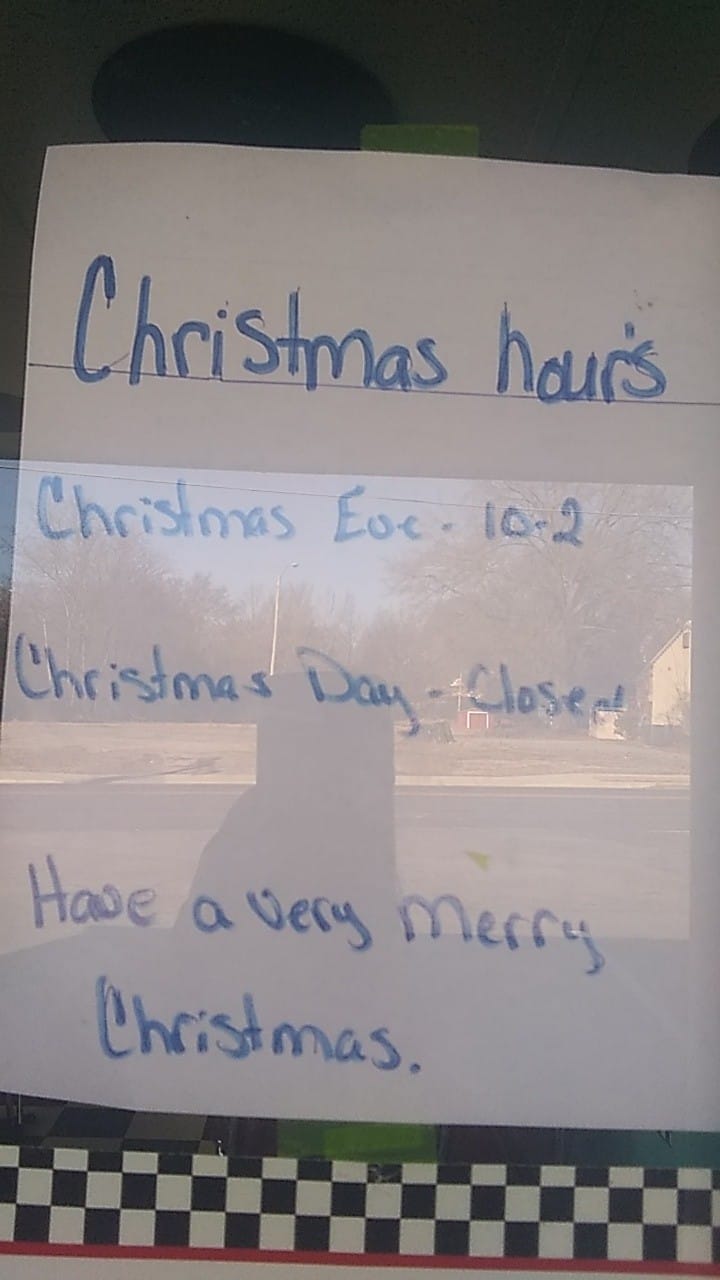 Christmas hour's
Christmas Eve - 10-2
Christmas Day - Closed
Have a very merry
Christmas.